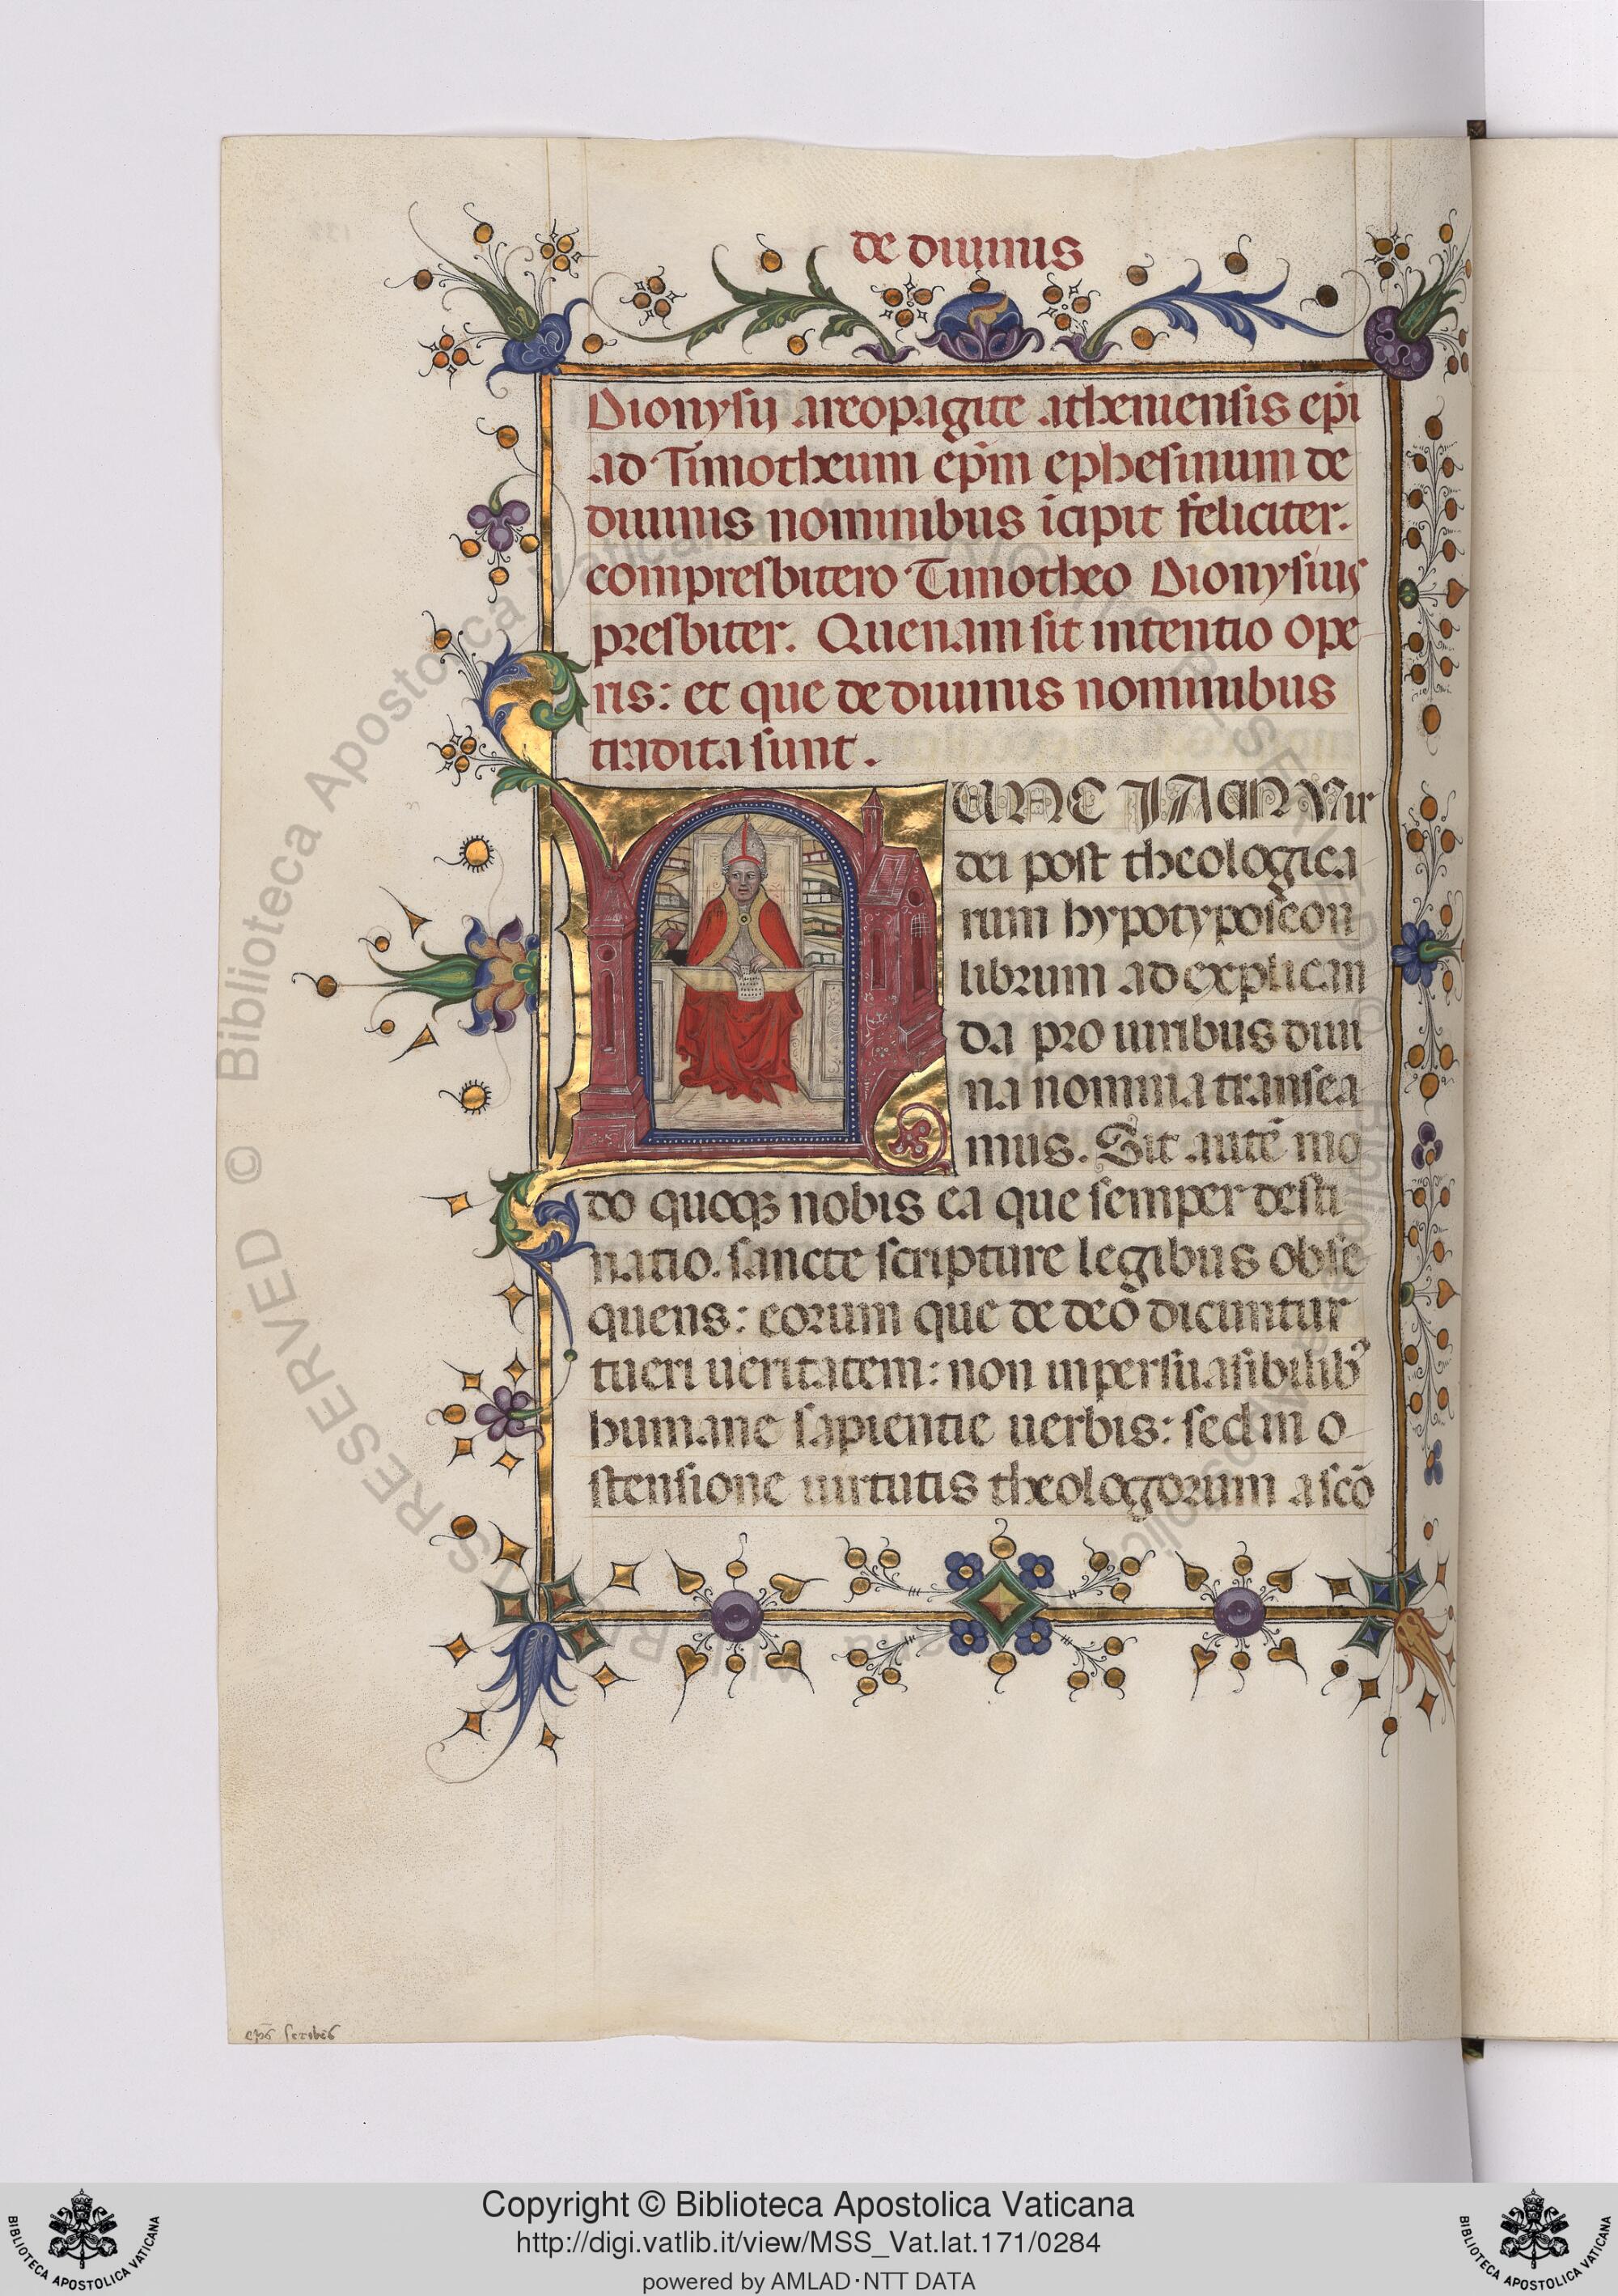 de diuinis
Dionysij areopagite atheniensis ep̄i
ad Timotheum ep̄m ephesinum de
diuinis nominibus īcipit feliciter.
compresbitero Timotheo Dionysius
presbiter. Quenam sit intentio ope
ris: et que de diuinis nominibus
tradita sunt.
NUNC IAM Vir
dei post theologica
rum hypotyposeon
librum ad explican
da pro uiribus diui
na nomina transea
mus. Sit autē mo
do quoqꝫ nobis ea que semper desti
natio. sancte scripture legibus obse
quens: eorum que de deo dicuntur
tueri ueritatem: non in persuasibilibꝰ
humane sapientie uerbis: sed in o
stensione uirtutis theologorum a sc̄o
Copyright © Biblioteca Apostolica Vaticana
http://digi.vatlib.it/view/MSS_Vat.lat.171/0284
powered by AMLAD·NTT DATA
BIBLIOTECA APOSTOLICA VATICANA
BIBLIOTECA APOSTOLICA VATICANA